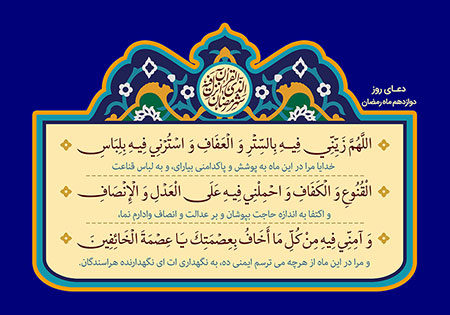 دعـای روز
دوازدهم ماه رمضان
شهر رمضان الذی انزل فیه القرآن
اللَّهُمَّ زَيِّنِّي فِيهِ بِالسِّتْرِ وَ الْعَفَافِ وَ اسْتُرْنِي فِيهِ بِلِبَاسِ
خدایا مرا در این ماه به پوشش و پاکدامنی بیارای، و به لباس قناعت
الْقُنُوعِ وَ الْكَفَافِ وَ احْمِلْنِي فِيهِ عَلَى الْعَدْلِ وَ الْإِنْصَافِ
و اکتفا به اندازه حاجت بپوشان و بر عدالت و انصاف وادارم نما،
وَ آمِنِّي فِيهِ مِنْ كُلِّ مَا أَخَافُ بِعِصْمَتِكَ يَا عِصْمَةَ الْخَائِفِينَ
و مرا در این ماه از هرچه می ترسم ایمنی ده، به نگهداری ات ای نگهدارنده هراسندگان.